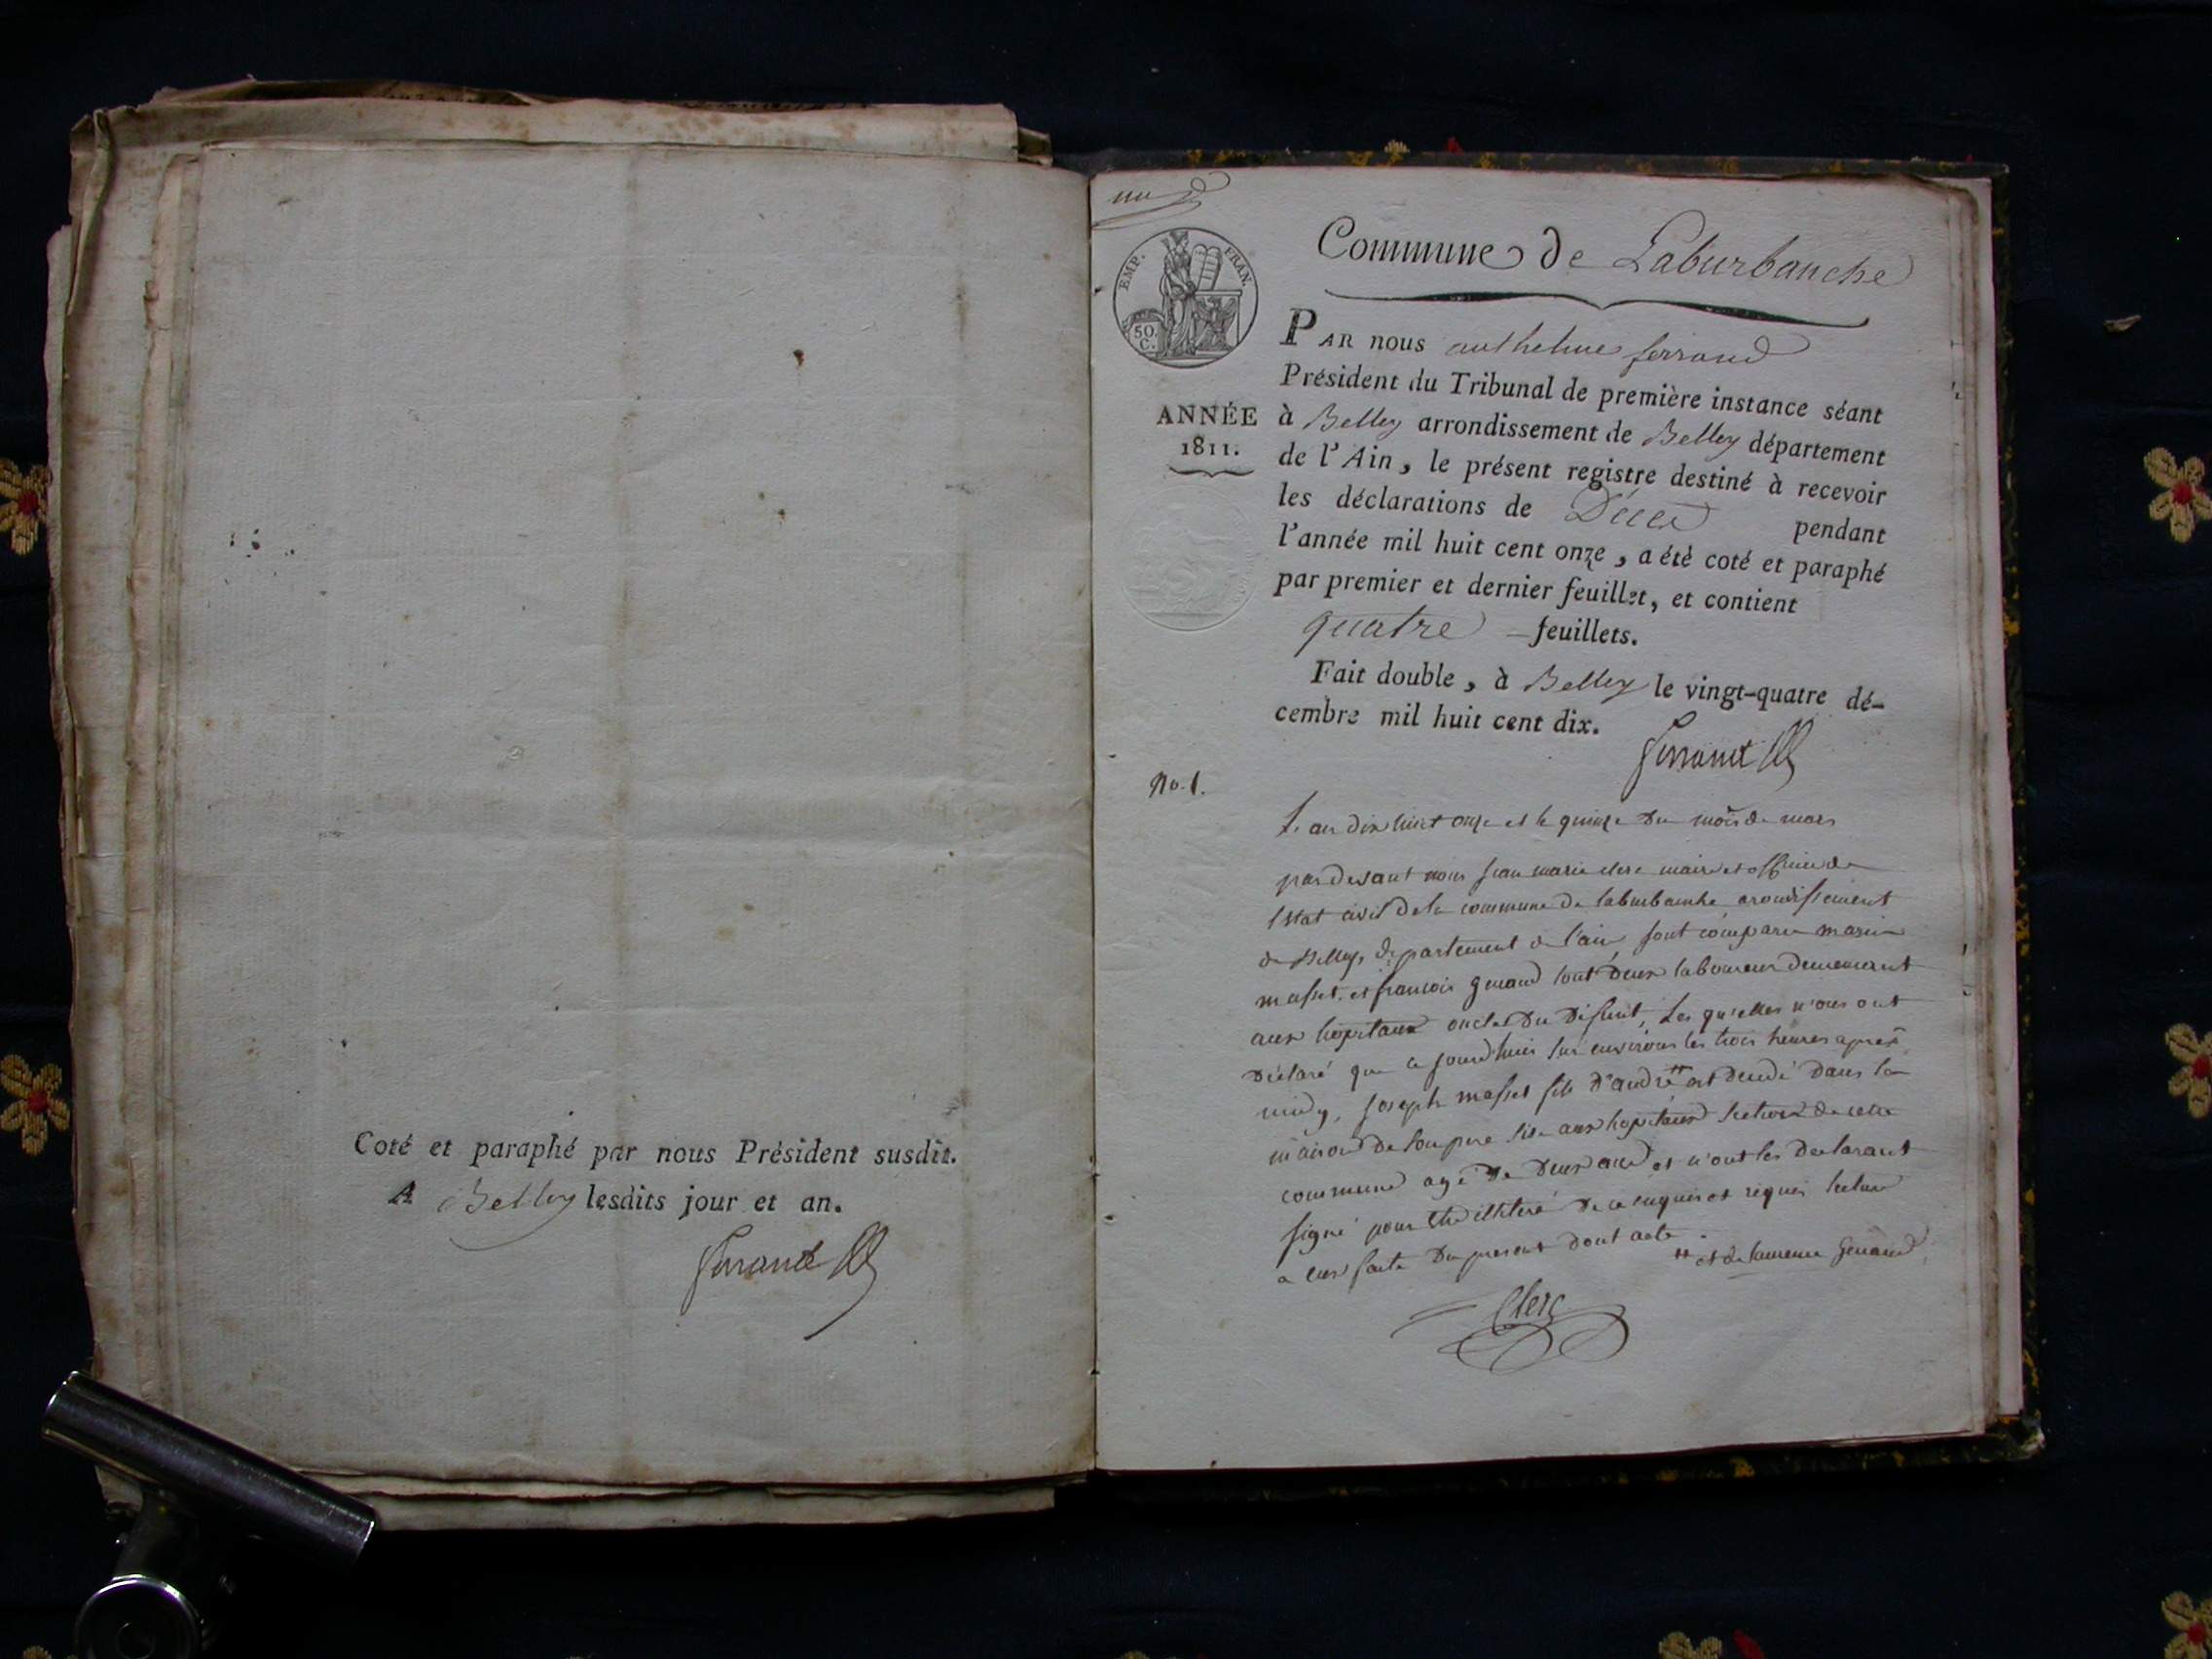 Coté et paraphé par nous Président susdit.
A Belley lesdits jour et an.
Ferrand
un
EMP. FRAN.
50.
C.
Commune de Laburbanche
PAR nous anthelme ferrand
Président du Tribunal de première instance séant
ANNÉE
1811.
à Belley arrondissement de Belley département
de l'Ain, le présent registre destiné à recevoir
les déclarations de Décès pendant
l'année mil huit cent onze, a été coté et paraphé
par premier et dernier feuillet, et contient
quatre feuillets.
Fait double, à Belley le vingt-quatre dé-
cembre mil huit cent dix.
Ferrand
No. 1.
L'an dix huit onze et le quinze du mois de mars
pardevant nous jean marie clerc maire et officier de
l'état civil de la commune de laburbanche arondissement
de Belley, département de l'ain sont comparu
masset et francois genand tout deux laboureur demeurant
aux hopitaux oncles du défunt, Les qu'elles n'ous ont
déclaré que ce jourd'huis sur environs les trois heures après
midy, joseph masset fils d'andré ++ est décédé dans la
maison de son pere sise aux hopitaux section de cette
commune agé de deux ans et n'ont les declarant
signé pour être illiteré de ce enquis et requis lecture
a eux faite du present dont acte.
++ et de laurence Genand
Clerc